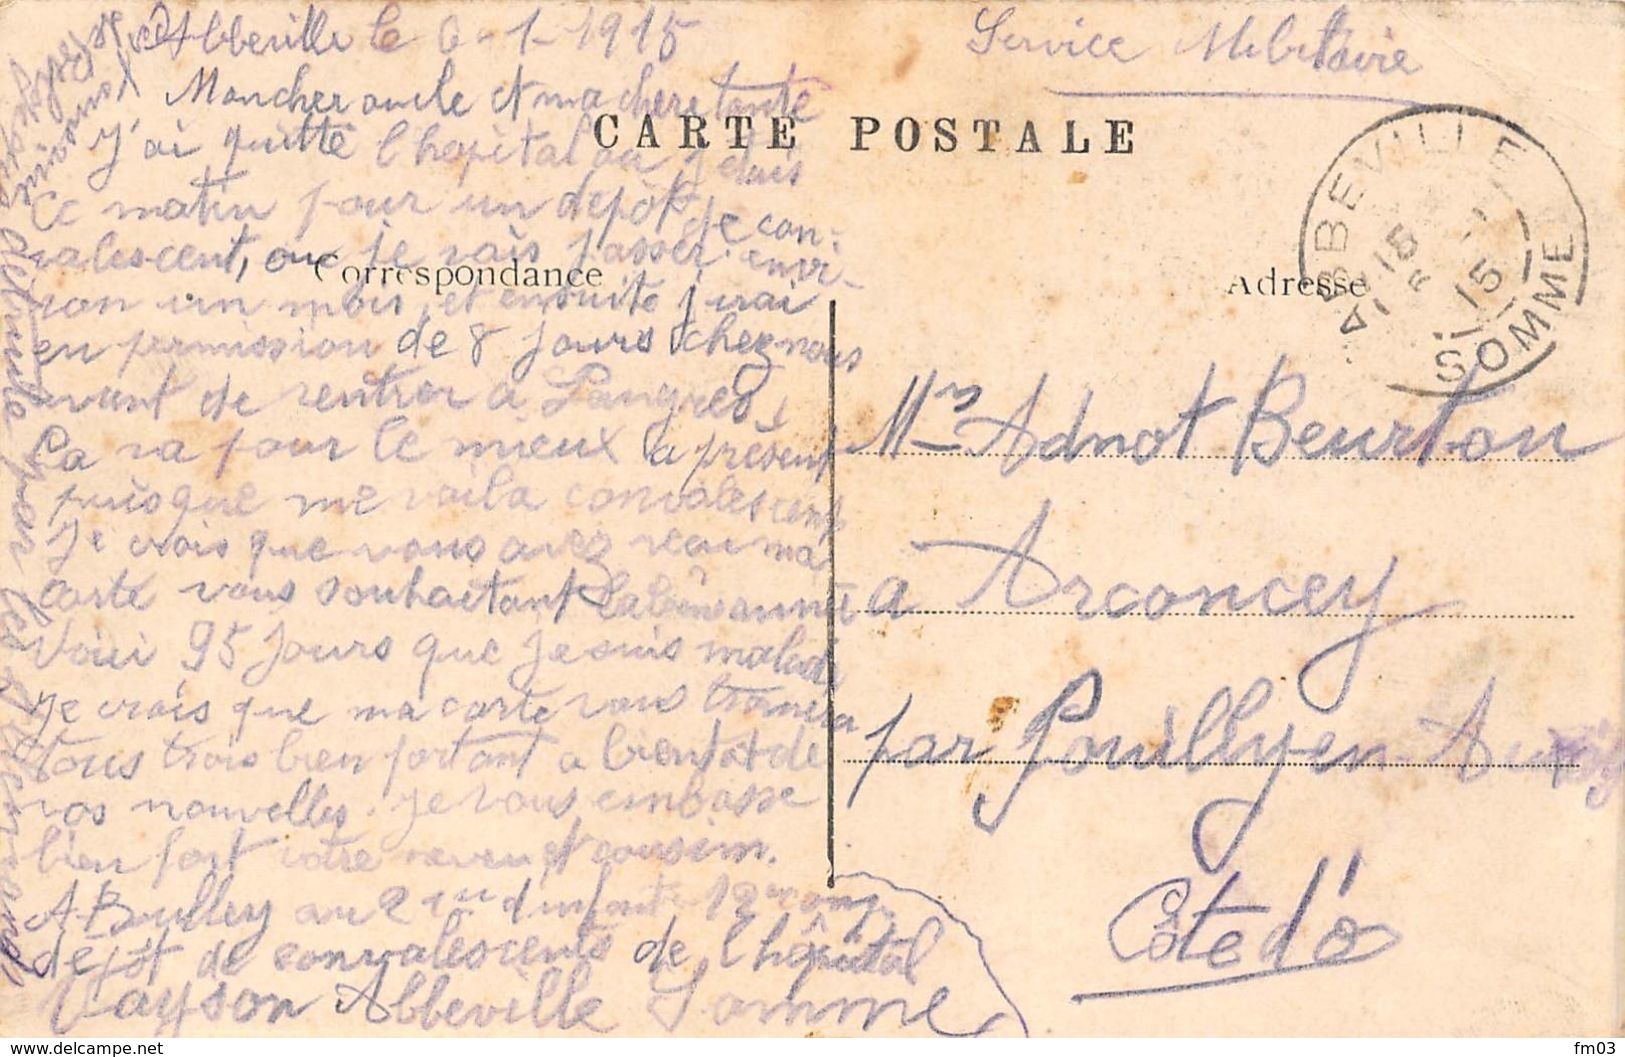 Abbeville le 6-1-1915
Service Militaire
Mon cher oncle et ma chere tante
CARTE POSTALE
J'ai quitté l'hopital ou j'etais
ce matin pour un dépôt de con-
valescent, ou je vais passer envi-
Correspondance
ron un mois, et ensuite j'irai
en permission de 8 jours chez nous
avant de rentrer a Langres
Ca va pour le mieux a present
puisque me voila convalescent
Je crois que vous avez recu ma
carte vous souhaitant la bonne année
Voici 95 jours que je suis malade
je crois que ma carte vous trouvera
tous trois bien portant a bientot de
vos nouvelles. je vous embrasse
bien fort votre neveu et cousin.
A Boulley au 2 d'infanterie 12 comp
dépôt de convalescents de l'hôpital
Vayson Abbeville Somme
détruite par les Allemands
ABBEVILLE
15
6 - 1
15
SOMME
Adresse
Mr Adnot Beurton
a Arconcey
par Pouilly en Auxois
Côte d'o
fm03